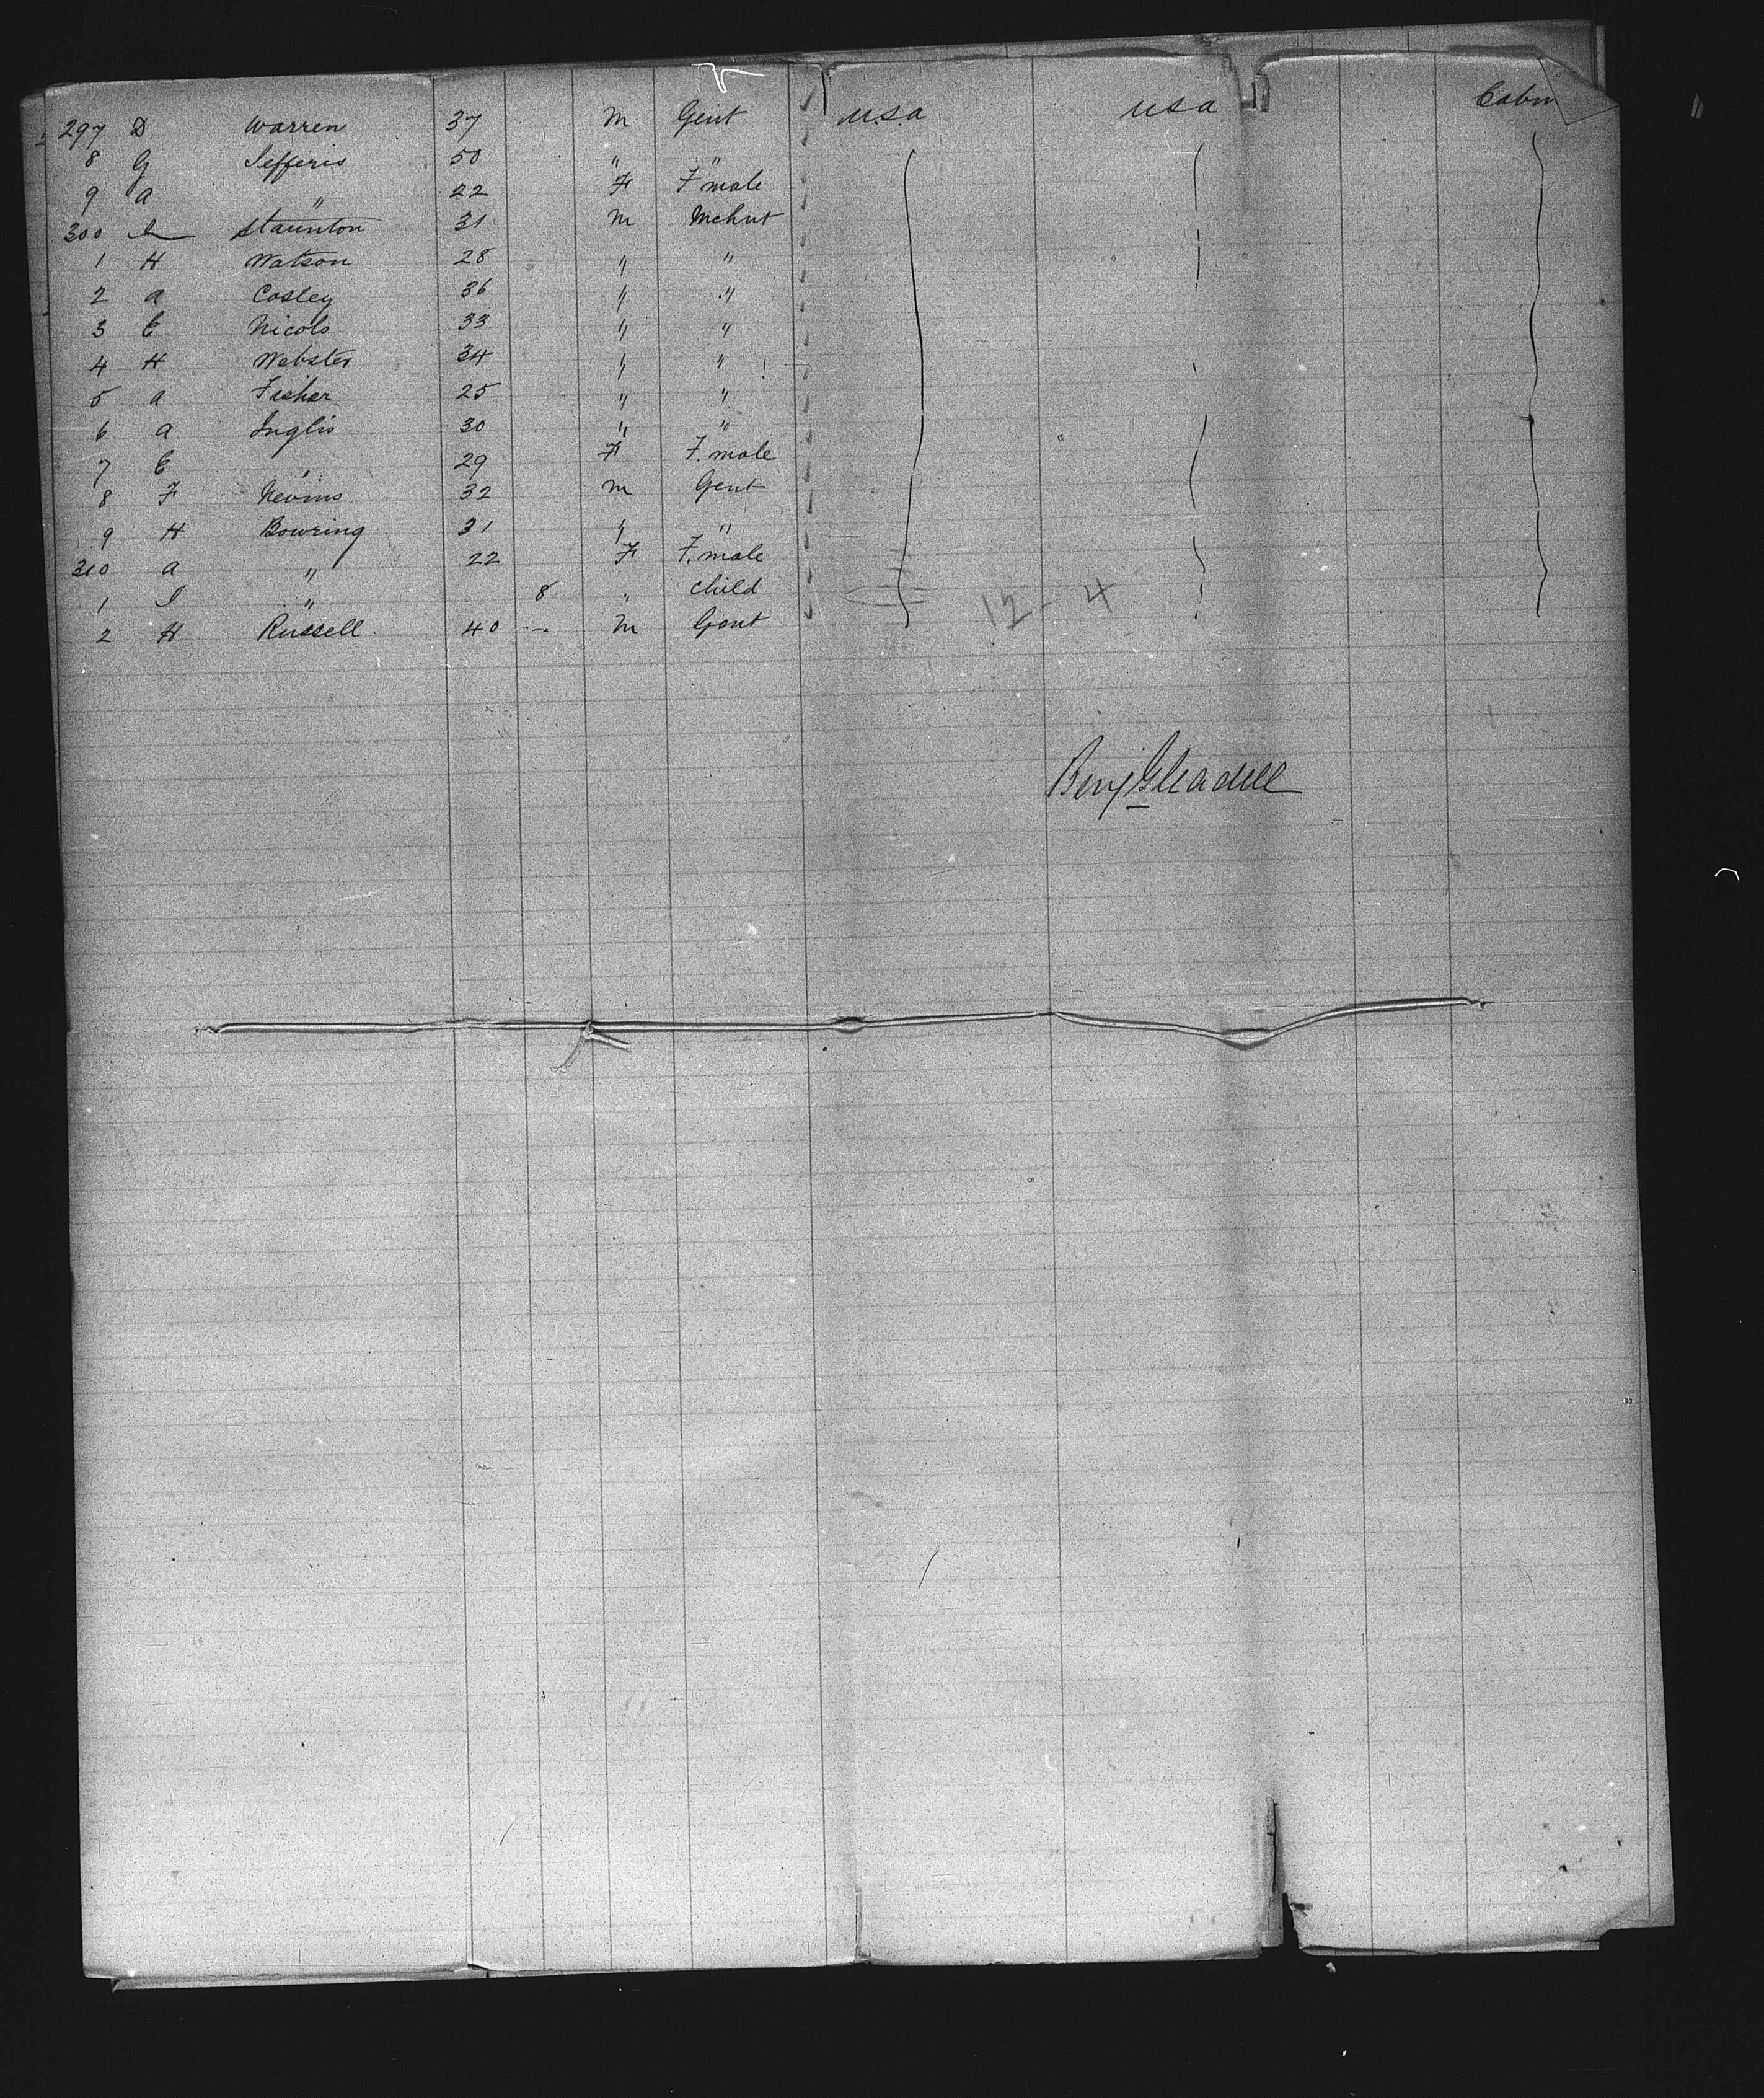 297 D Warren 37 M Gent U.S.A U S A Cabin
8 G Jefferis 50 " "
9 A " 22 F F male
300 Staunton 31 M Mchnt
1 H Watson 28 " "
2 A Cosley 36 " "
3 E Nicols 33 " "
4 H Webster 34 " "
5 A Fisher 25 " "
6 A Inglis 30 " "
7 E " 29 F F. male
8 F Nevins 32 M Gent
9 H Bowring 31 " "
310 A " 22 F F. male
1 I " 8 " child
2 H Russell 40 - M Gent
12 - 4
Benj Gleadell